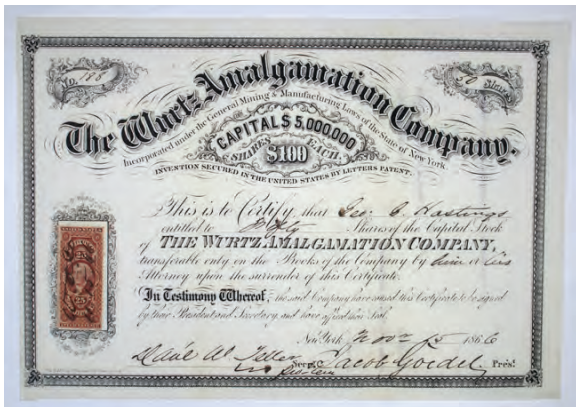 No. 188
50 Shares
The Wurtz Amalgamation Company.
Incorporated under the General Mining & Manufacturing Laws of the State of New York.
CAPITAL $ 5,000,000
SHARES $100 EACH.
INVENTION SECURED IN THE UNITED STATES BY LETTERS PATENT.
This is to Certify, that Geo. C. Hastings
entitled to Fifty Shares of the Capital Stock
of THE WURTZ AMALGAMATION COMPANY,
transferable only on the Books of the Company by him or his
Attorney upon the surrender of this Certificate.
In Testimony Whereof, the said Company have caused this Certificate to be signed
by their President and Secretary and have affixed their Seal.
New York Nov 15 1866
Secry. Jacob Goedel Pres't